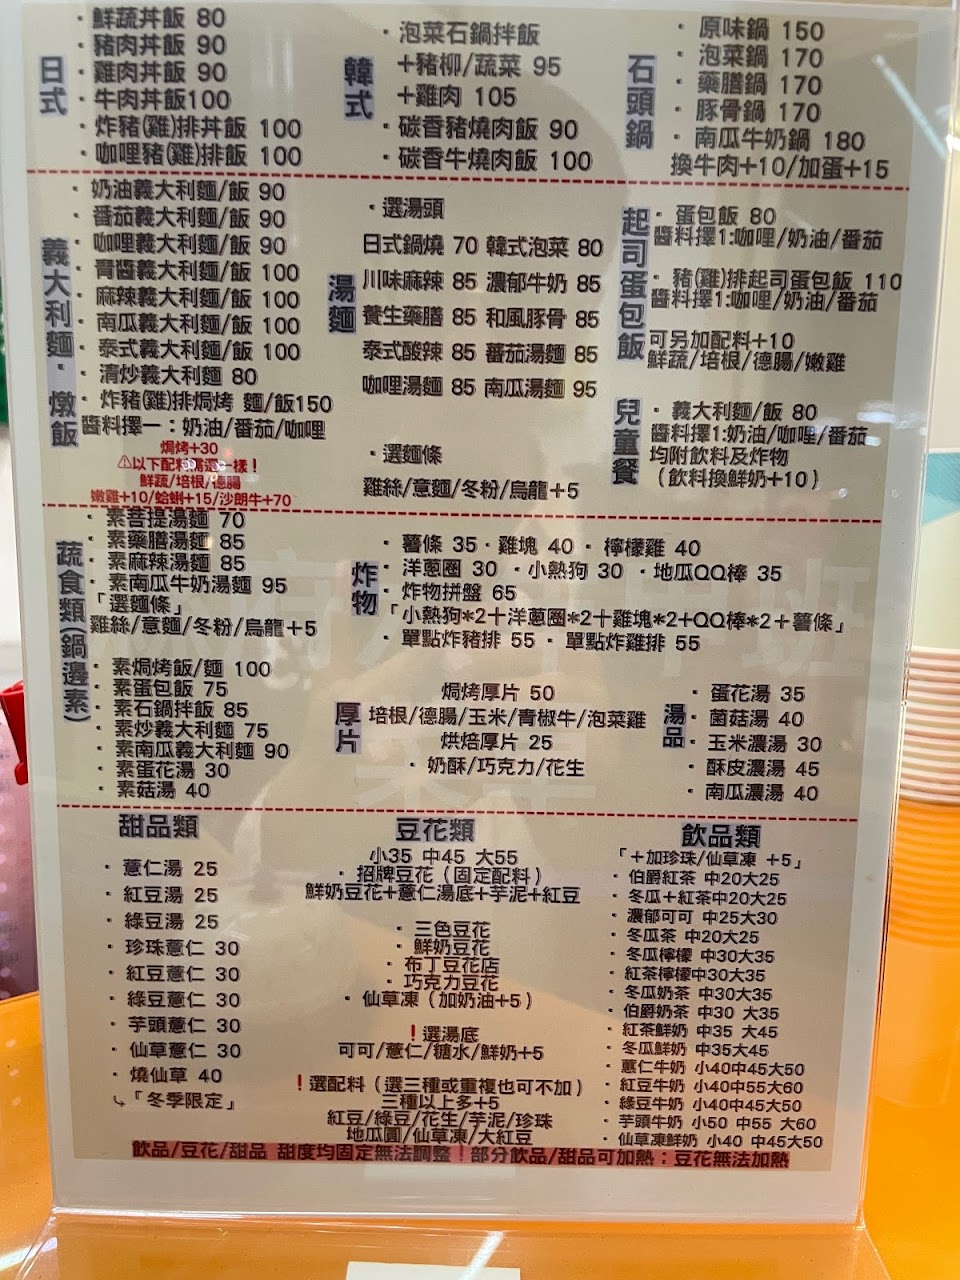 日式
・鮮蔬丼飯 80
・豬肉丼飯 90
・雞肉丼飯 90
・牛肉丼飯100
・炸豬(雞)排丼飯 100
・咖哩豬(雞)排飯 100
韓式
・泡菜石鍋拌飯
＋豬柳/蔬菜 95
＋雞肉 105
・碳香豬燒肉飯 90
・碳香牛燒肉飯 100
石頭鍋
・原味鍋 150
・泡菜鍋 170
・藥膳鍋 170
・豚骨鍋 170
・南瓜牛奶鍋 180
換牛肉+10/加蛋+15
義大利麵・燉飯
・奶油義大利麵/飯 90
・番茄義大利麵/飯 90
・咖哩義大利麵/飯 90
・青醬義大利麵/飯 100
・麻辣義大利麵/飯 100
・南瓜義大利麵/飯 100
・泰式義大利麵/飯 100
・清炒義大利麵 80
・炸豬(雞)排焗烤 麵/飯150
醬料擇一：奶油/番茄/咖哩
焗烤+30
⚠以下配料需選一樣！
鮮蔬/培根/德腸
嫩雞+10/蛤蜊+15/沙朗牛+70
湯麵
・選湯頭
日式鍋燒 70 韓式泡菜 80
川味麻辣 85 濃郁牛奶 85
養生藥膳 85 和風豚骨 85
泰式酸辣 85 蕃茄湯麵 85
咖哩湯麵 85 南瓜湯麵 95
・選麵條
雞絲/意麵/冬粉/烏龍+5
起司蛋包飯
・蛋包飯 80
醬料擇1:咖哩/奶油/番茄
・豬(雞)排起司蛋包飯 110
醬料擇1:咖哩/奶油/番茄
可另加配料+10
鮮蔬/培根/德腸/嫩雞
兒童餐
・義大利麵/飯 80
醬料擇1:奶油/咖哩/番茄
均附飲料及炸物
（飲料換鮮奶+10）
蔬食類(鍋邊素)
・素菩提湯麵 70
・素藥膳湯麵 85
・素麻辣湯麵 85
・素南瓜牛奶湯麵 95
「選麵條」
雞絲/意麵/冬粉/烏龍+5
・素焗烤飯/麵 100
・素蛋包飯 75
・素石鍋拌飯 85
・素炒義大利麵 75
・素南瓜義大利麵 90
・素蛋花湯 30
・素菇湯 40
炸物
・薯條 35・雞塊 40・檸檬雞 40
・洋蔥圈 30 ・小熱狗 30 ・地瓜QQ棒 35
・炸物拼盤 65
「小熱狗*2＋洋蔥圈*2＋雞塊*2+QQ棒*2＋薯條」
・單點炸豬排 55・單點炸雞排 55
厚片
焗烤厚片 50
培根/德腸/玉米/青椒牛/泡菜雞
烘焙厚片 25
・奶酥/巧克力/花生
湯品
・蛋花湯 35
・菌菇湯 40
・玉米濃湯 30
・酥皮濃湯 45
・南瓜濃湯 40
甜品類
・薏仁湯 25
・紅豆湯 25
・綠豆湯 25
・珍珠薏仁 30
・紅豆薏仁 30
・綠豆薏仁 30
・芋頭薏仁 30
・仙草薏仁 30
・燒仙草 40
⤷「冬季限定」
豆花類
小35 中45 大55
・招牌豆花（固定配料）
鮮奶豆花+薏仁湯底+芋泥+紅豆
・三色豆花
・鮮奶豆花
・布丁豆花店
・巧克力豆花
・仙草凍（加奶油+5）
！選湯底
可可/薏仁/糖水/鮮奶+5
！選配料（選三種或重複也可不加）
三種以上多+5
紅豆/綠豆/花生/芋泥/珍珠
地瓜圓/仙草凍/大紅豆
飲品類
「＋加珍珠/仙草凍 +5」
・伯爵紅茶 中20大25
・冬瓜＋紅茶中20大25
・濃郁可可 中25大30
・冬瓜茶 中20大25
・冬瓜檸檬 中30大35
・紅茶檸檬中30大35
・冬瓜奶茶 中30大35
・伯爵奶茶 中30 大35
・紅茶鮮奶 中35 大45
・冬瓜鮮奶 中35大45
・薏仁牛奶 小40中45大50
・紅豆牛奶 小40中55大60
・綠豆牛奶 小40中45大50
・芋頭牛奶 小50 中55 大60
・仙草凍鮮奶 小40 中45大50
飲品/豆花/甜品 甜度均固定無法調整！部分飲品/甜品可加熱：豆花無法加熱